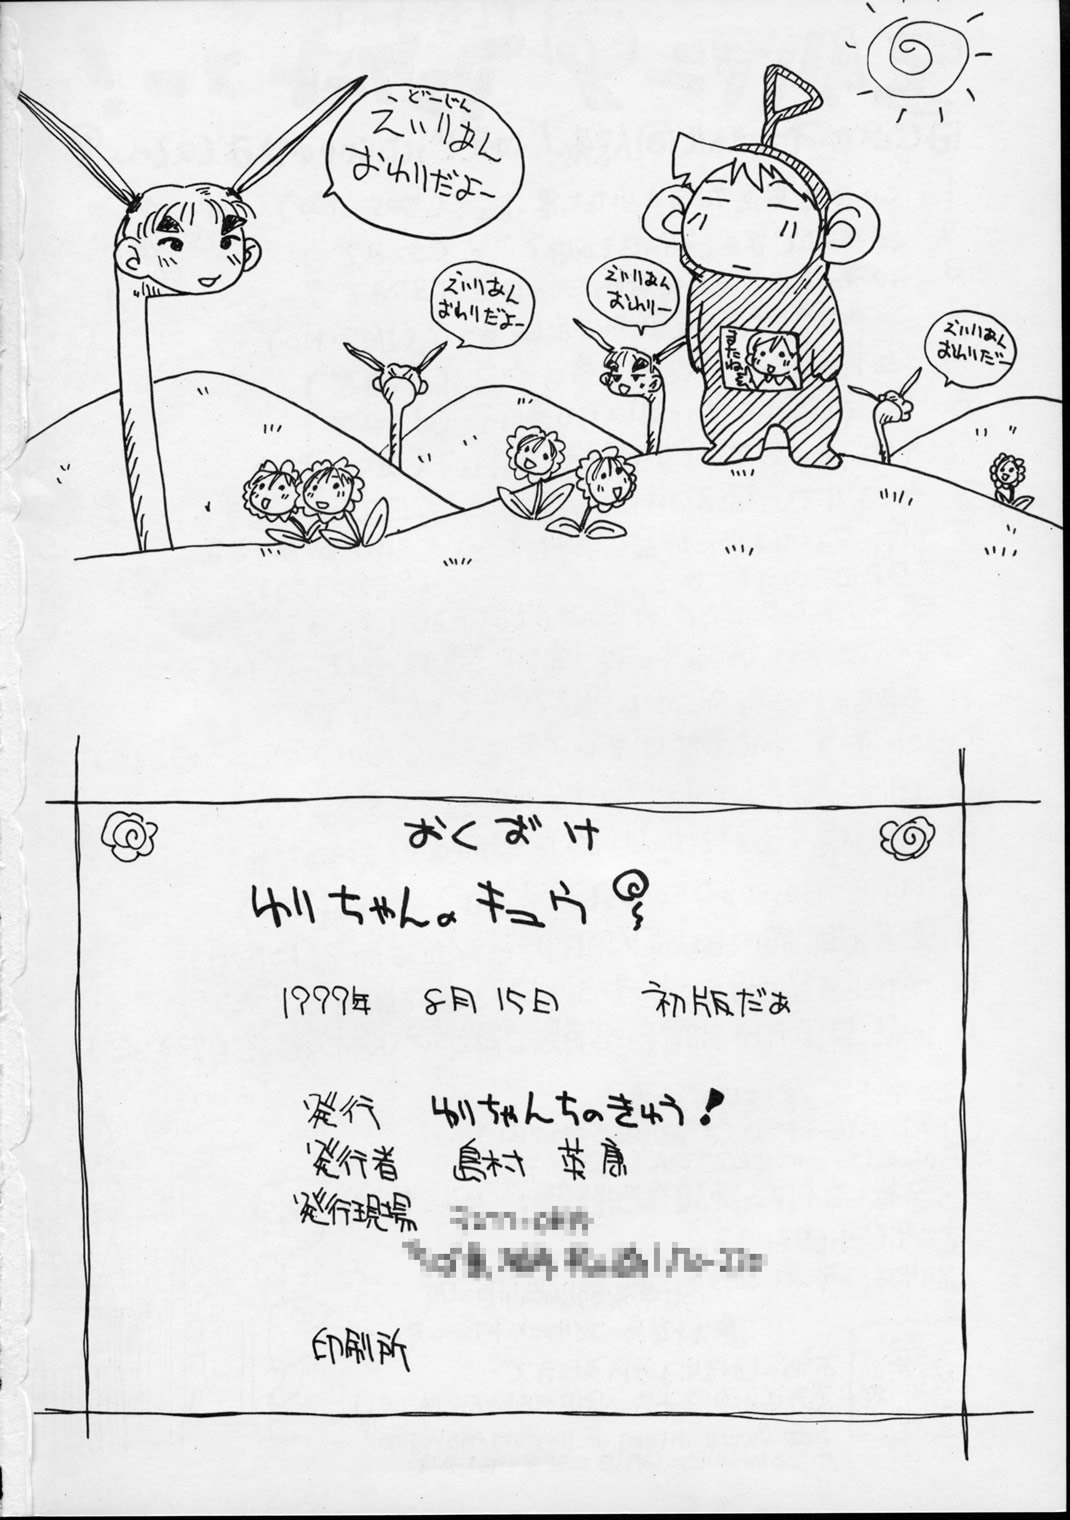 どーじん
えいりあん
おわりだよー
えいりあん
おわりだよー
えいりあん
おわりー
えいりあん
おわりだー
またねっ
おくづけ
ゆりちゃんのキュウ
1999年 8月15日 初版だぁ
発行 ゆりちゃんちのきゅう!
発行者 島村 英康
発行現場
印刷所